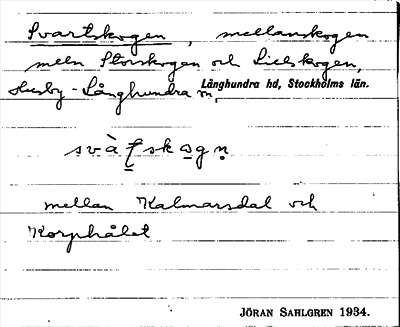 Svartskogen, mellanskogen
meln Storskogen och Lielskogen,
Husby-Långhundra sn, Långhundra hd, Stockholms län.
svàʈskogn̥
mellan Kalmarsdal och
Korphålet
JÖRAN SAHLGREN 1934.